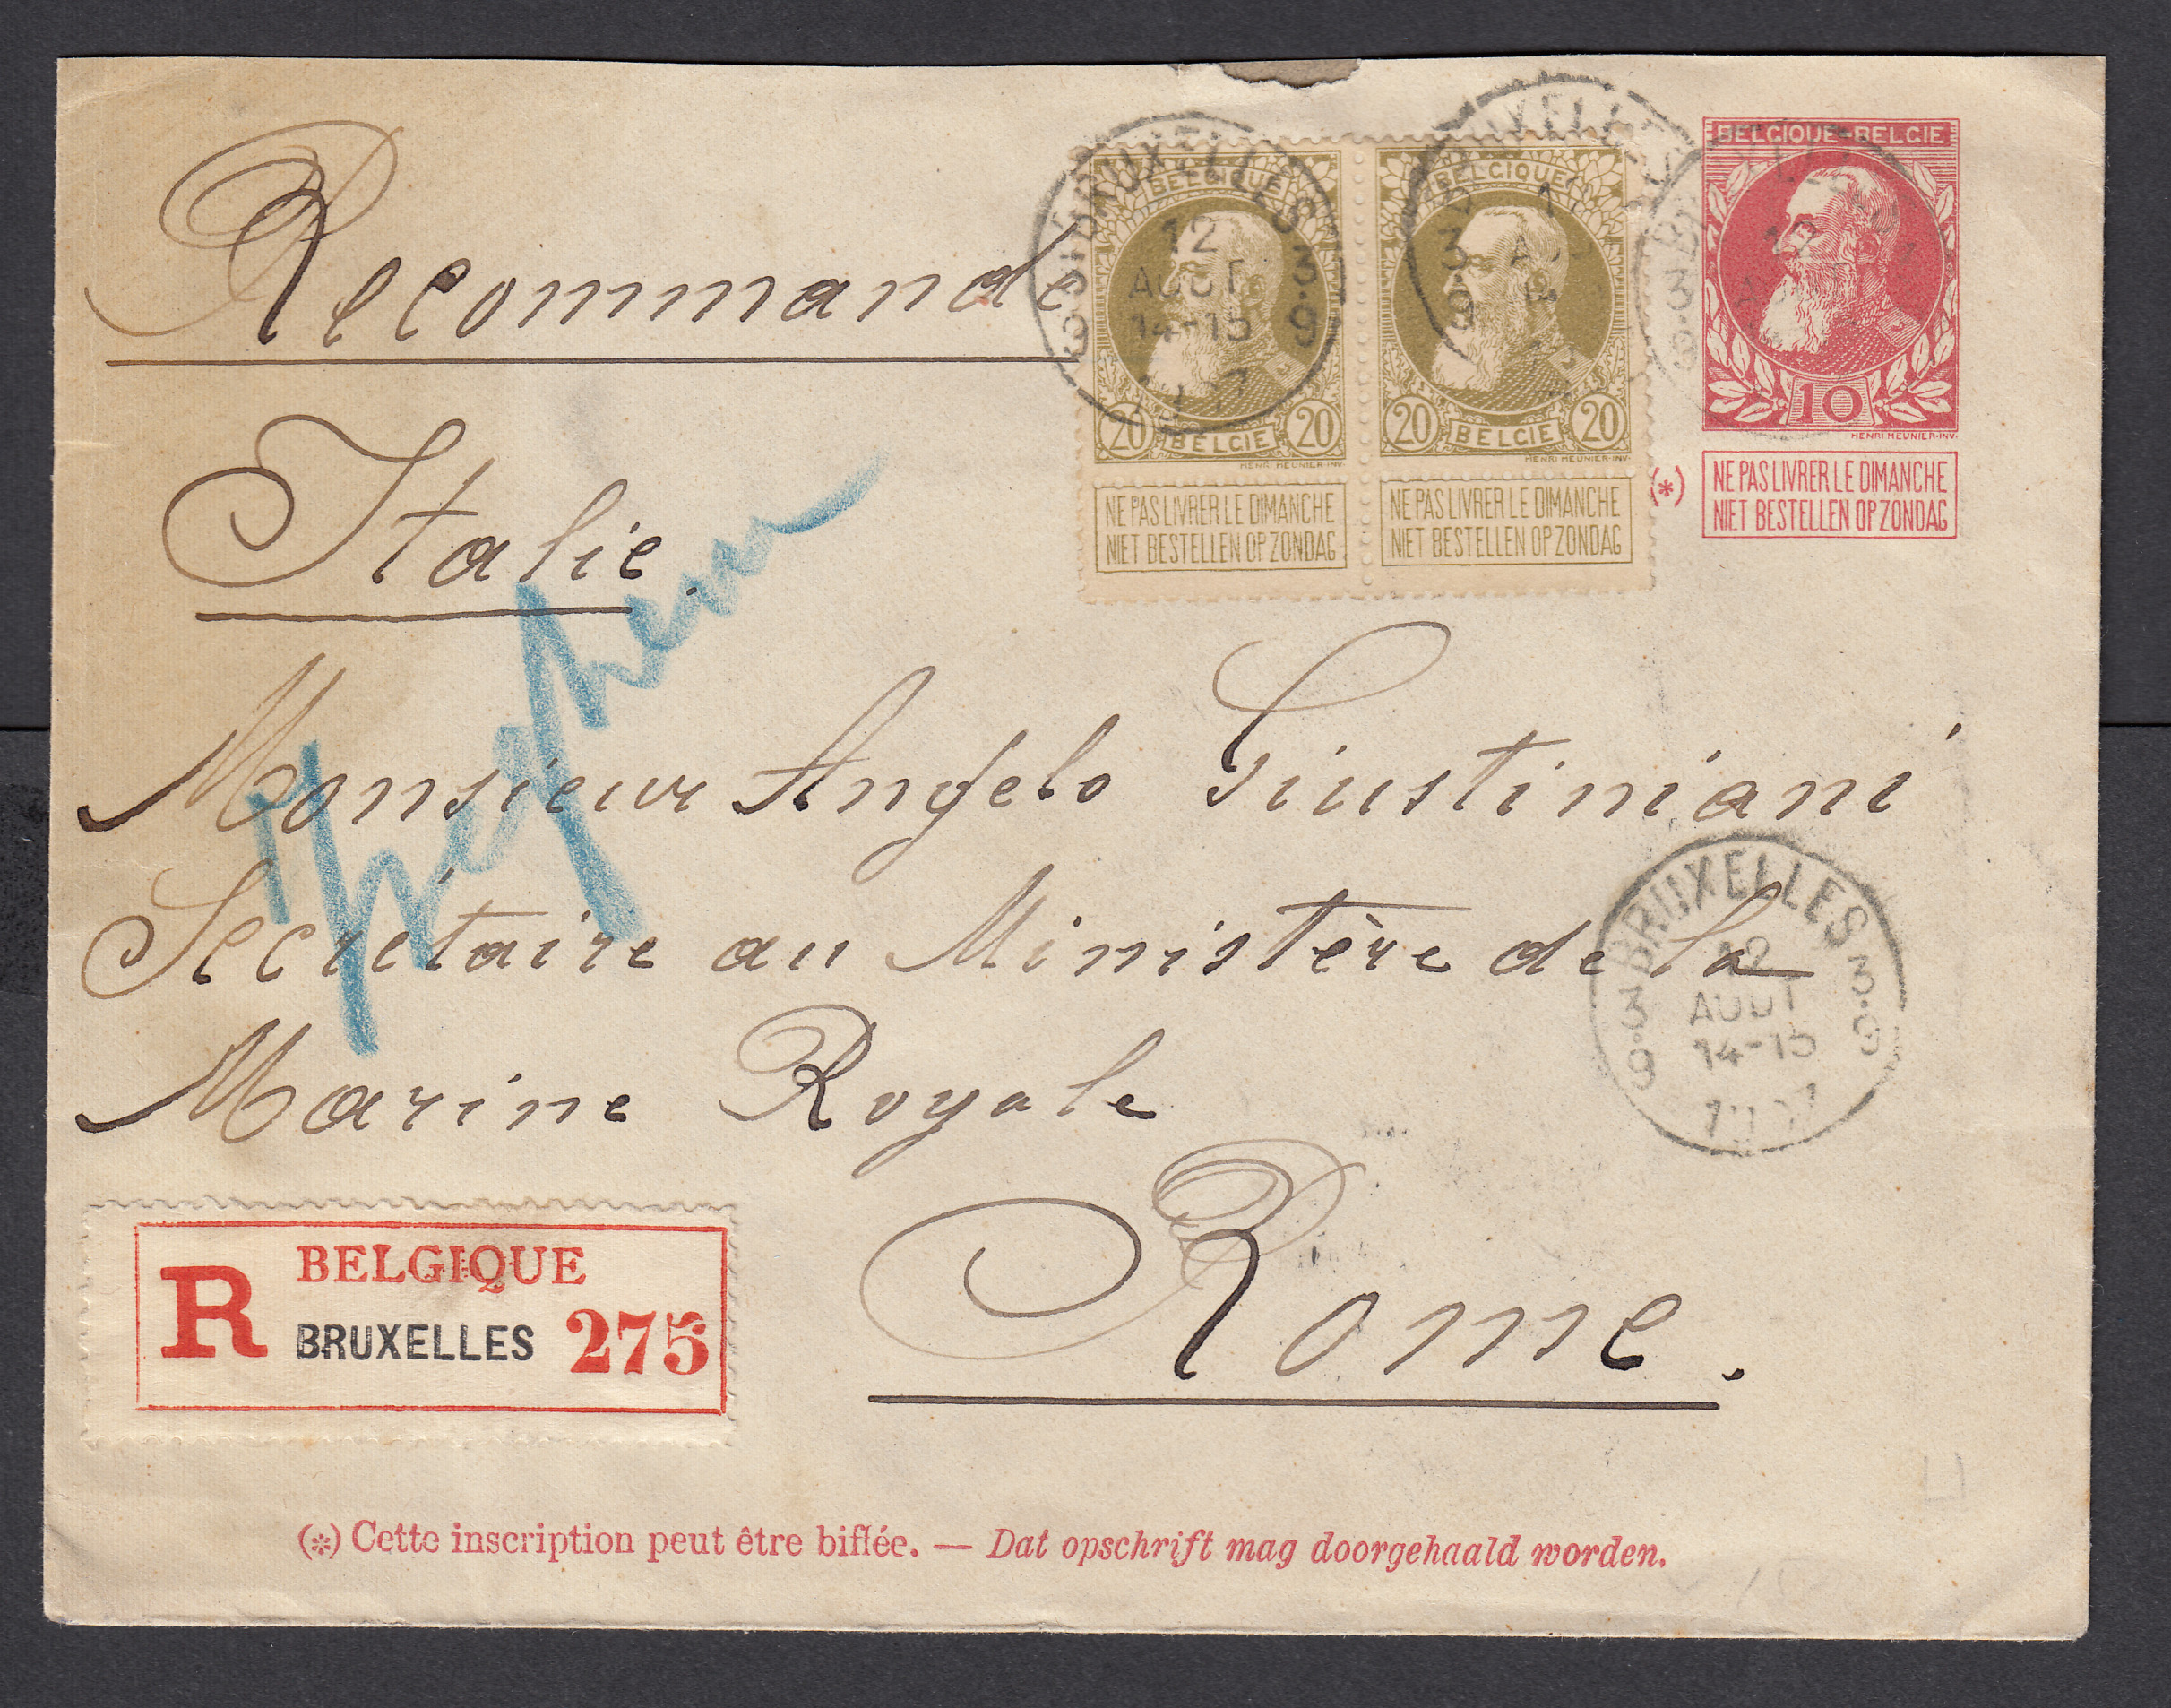 Recommandé
Italie.
Monsieur Angelo Giustiniani
Secrétaire au Ministère de la
Marine Royale
Rome.
BRUXELLES
12
AOUT
14-15
3·9
3·9
BELGIQUE
20 BELGIE 20
HENRI MEUNIER·INV.
NE PAS LIVRER LE DIMANCHE
NIET BESTELLEN OP ZONDAG
BELGIQUE
20 BELGIE 20
HENRI MEUNIER·INV.
NE PAS LIVRER LE DIMANCHE
NIET BESTELLEN OP ZONDAG
BELGIQUE-BELGIE
10
HENRI MEUNIER·INV.
(*)
NE PAS LIVRER LE DIMANCHE
NIET BESTELLEN OP ZONDAG
BRUXELLES
3·9
12
AOUT
14-15
3·9
R
BELGIQUE
BRUXELLES 275
(*) Cette inscription peut être biffée. — Dat opschrift mag doorgehaald worden.